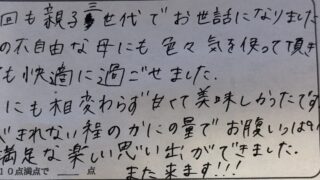 回も親子三世代でお世話になりました
の不自由な母にも色々気を使って頂き
も快適に過ごせました.
にも相変わらず甘くて美味しかったです
きれない程のかにの量でお腹いっぱい
満足な楽しい思い出ができました.
10点満点で 点
また来ます!!!